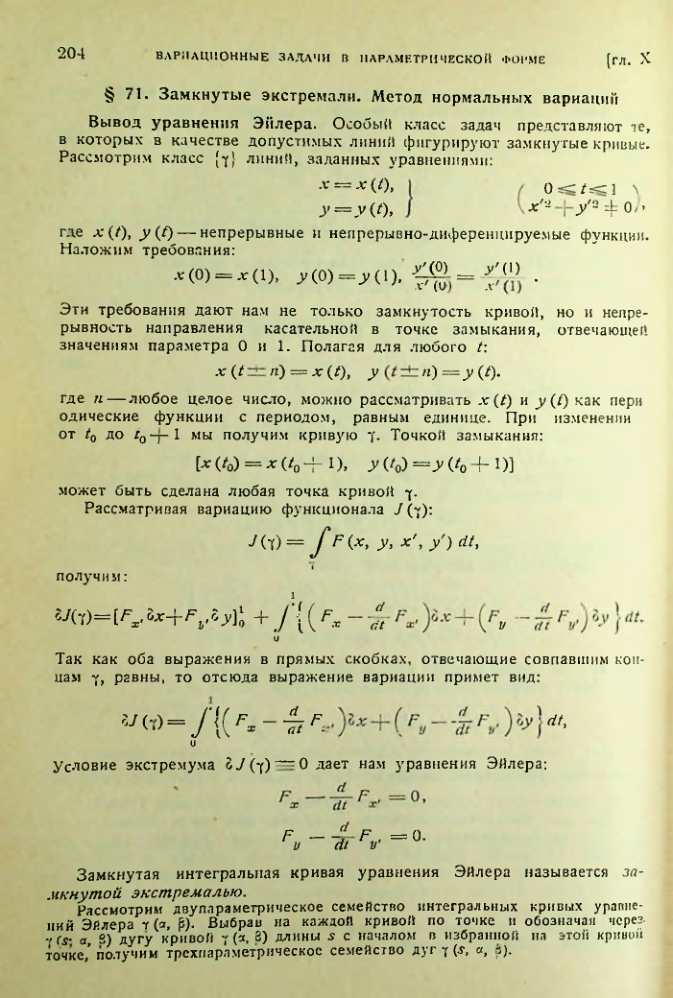 204 ВАРИАЦИОННЫЕ ЗАДАЧИ В ПАРАМЕТРИЧЕСКОЙ ФОРМЕ [гл. X
§ 71. Замкнутые экстремали. Метод нормальных вариаций
Вывод уравнения Эйлера. Особый класс задач представляют те,
в которых в качестве допустимых линий фигурируют замкнутые кривые.
Рассмотрим класс {γ} линий, заданных уравнениями:
x = x(t), } ( 0 ⩽ t ⩽ 1 )
y = y(t), } ( x'² + y'² ≠ 0 ),
где x(t), y(t) — непрерывные и непрерывно-диференцируемые функции.
Наложим требования:
x(0) = x(1), y(0) = y(1), y'(0)/x'(0) = y'(1)/x'(1) .
Эти требования дают нам не только замкнутость кривой, но и непре-
рывность направления касательной в точке замыкания, отвечающей
значениям параметра 0 и 1. Полагая для любого t:
x(t ± n) = x(t), y(t ± n) = y(t).
где n — любое целое число, можно рассматривать x(t) и y(t) как пери
одические функции с периодом, равным единице. При изменении
от t₀ до t₀ + 1 мы получим кривую γ. Точкой замыкания:
[x(t₀) = x(t₀ + 1), y(t₀) = y(t₀ + 1)]
может быть сделана любая точка кривой γ.
Рассматривая вариацию функционала J(γ):
J(γ) = ∫_γ F(x, y, x', y') dt,
получим:
δJ(γ) = [F_x' δx + F_y' δy]₀¹ + ∫₀¹ {( F_x − d/dt F_x' ) δx + ( F_y − d/dt F_y' ) δy } dt.
Так как оба выражения в прямых скобках, отвечающие совпавшим кон-
цам γ, равны, то отсюда выражение вариации примет вид:
δJ(γ) = ∫₀¹ {( F_x − d/dt F_x' ) δx + ( F_y − d/dt F_y' ) δy } dt,
Условие экстремума δJ(γ) ≡ 0 дает нам уравнения Эйлера:
F_x − d/dt F_x' = 0,
F_y − d/dt F_y' = 0.
Замкнутая интегральная кривая уравнения Эйлера называется за-
мкнутой экстремалью.
Рассмотрим двупараметрическое семейство интегральных кривых уравне-
ний Эйлера γ(α, β). Выбрав на каждой кривой по точке и обозначая через
γ(s; α, β) дугу кривой γ(α, β) длины s с началом в избранной на этой кривой
точке, получим трехпараметрическое семейство дуг γ(s, α, β).